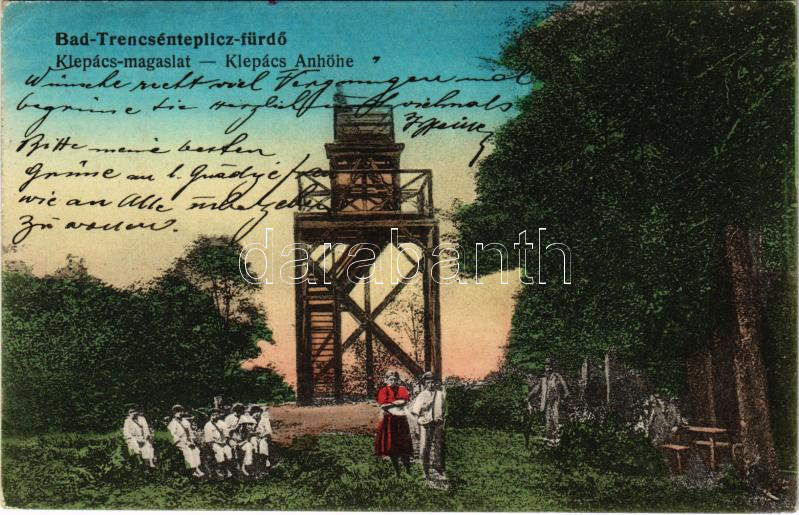 Bad-Trencsénteplicz-fürdő
Klepács-magaslat — Klepács Anhöhe
Wünsche recht viel Vergnügen
begrüsse Sie herzlich vielmals
Bitte meine besten
Grüsse an
wie an Alle
zu wollen.
darabanth